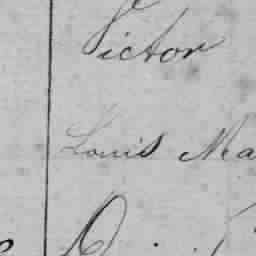 Victor
Louis Ma